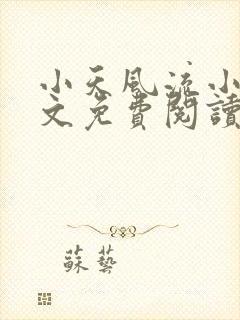 小天風流小
文免費閱讀
蘇藝